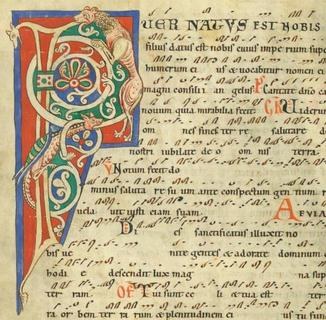 PUER NATUS EST NOBIS
filius datus est nobis cuius imperium supe
humerum ei us & uocabitur nomen e
magni consilii an gelus Cantate dno ca
nouum quia mirabilia fecit Uiderun
om nes fines ter re salutare d
nostri iubilate deo om nis terra
Notum fecit do
minus saluta re su um ante conspectum gen tium
uela uit iusti ciam suam. A LLELUIA
Di es sanctificatus illuxit no
bis ue nite gentes & adorate dominum
hodi e descendit lux mag na
ter ram. OF Tui sunt ce li & tua est ter
ra or bem ter ra rum & plenitudinem ei us